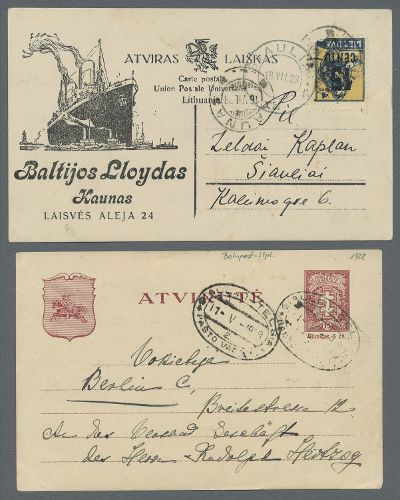 ATVIRAS LAIŠKAS
Carte postale
Union Postale Universelle
Lithuania
Baltijos Lloydas
Kaunas
LAISVĖS ALEJA 24
LIETUVA
CENTŲ
KAUNAS
18 VII 23
Leldai Kaplan
Šiauliai
Kalėimo gvė 6.
Bahnpost-Stpl.
1928
ATVIRUTĖ
LIETUVA
PAŠTO VAG
17-V
Vokietija
Berlin C,
Breitestrasse
An das Versand Geschäft
des Herrn Rudolph Hertzog